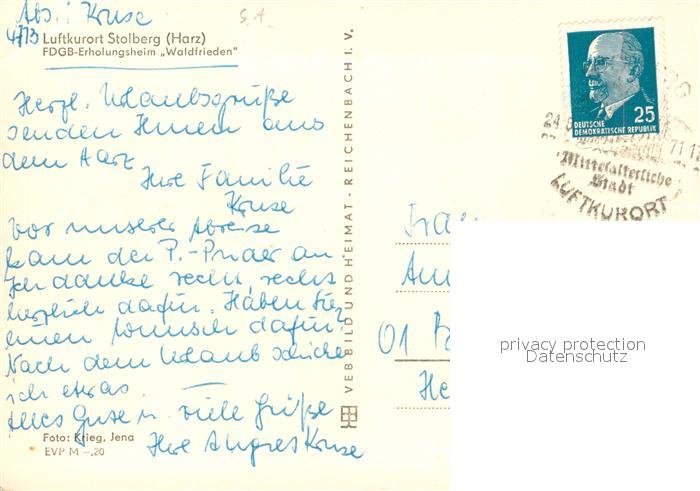 Abs.: Kruse
4713
S.A.
Luftkurort Stolberg (Harz)
FDGB-Erholungsheim „Waldfrieden“
Herzl. Urlaubsgrüße
senden Ihnen aus
dem Harz
Ihre Familie
Kruse
Vor unserer Abreise
kam der P.-Puder an.
Ich danke recht, recht
herzlich dafür. Haben Sie
einen Wunsch dafür?
Nach dem Urlaub schicke
ich etwas.
Alles Gute u. viele Grüße
Ihre Kruse
Foto: Krieg, Jena
EVP M –,20
VEB BILD UND HEIMAT · REICHENBACH I. V.
25
DEUTSCHE
DEMOKRATISCHE REPUBLIK
24.
71-17
Mittelalterliche
Stadt
LUFTKURORT
Frau
01
He
privacy protection
Datenschutz